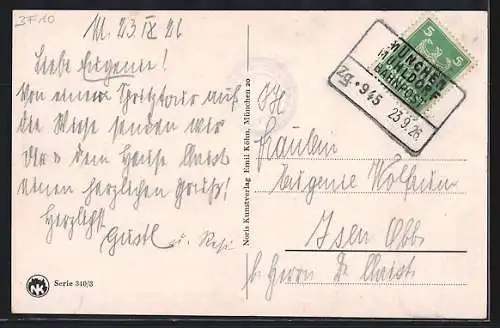 3F10
M. 23 IX 26
Liebe Eugenie!
Von einer Spritztour auf
die Wiese senden wir
Dir u. dem Hause Maist
einen herzlichen Gruß!
Herzlichst
Gustl u. Resi
Serie 340/3
Noris Kunstverlag Emil Köhn, München 20
5 5
MÜNCHEN
MÜHLDORF
BAHNPOST
Zg. 945 23.9.26
Fräulein
Eugenie Wolfrum
Isen Obb.
b. Herrn Dr.